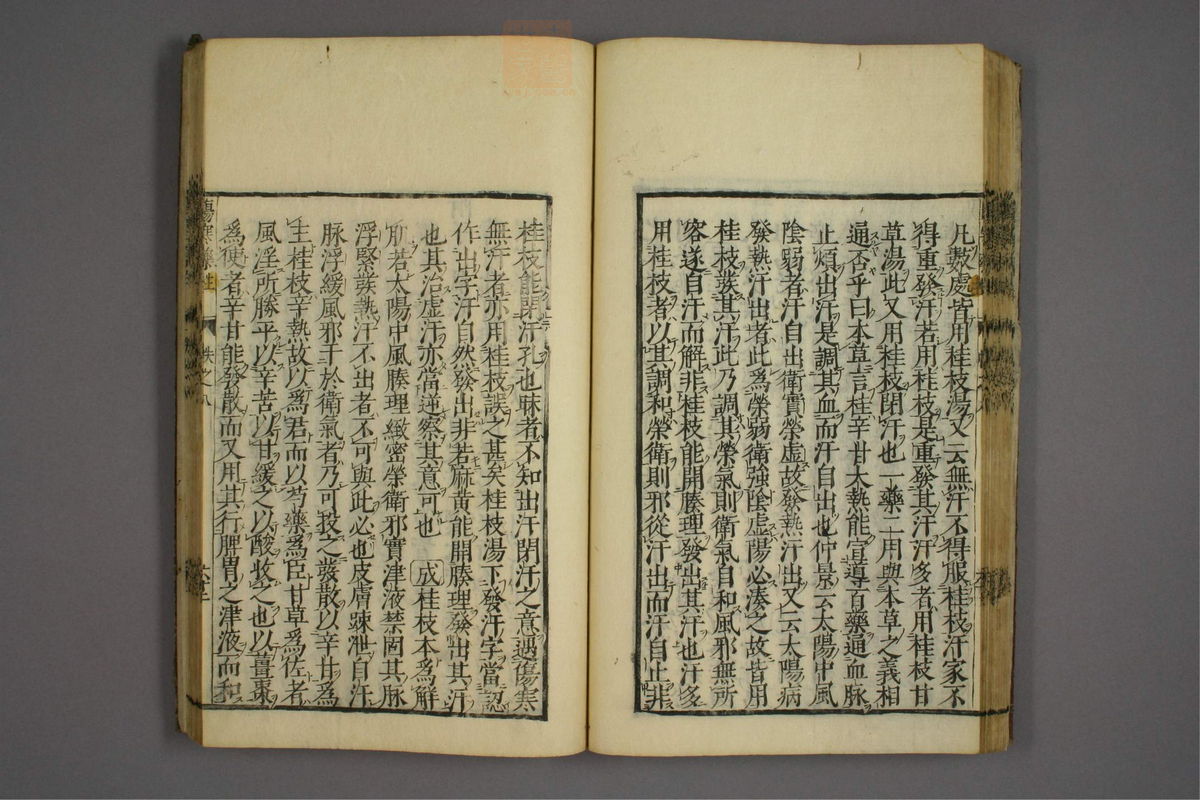 凡數處皆用桂枝湯又云無汗不得服桂枝汗家不
得重發汗若用桂枝是重發其汗汗多者用桂枝甘
草湯此又用桂枝閉汗也一藥二用與本草之義相
通否乎曰本草言桂辛甘大熱能宣導百藥通血脉
止煩出汗是調其血而汗自出也仲景云太陽中風
陰弱者汗自出衛實榮虛故發熱汗出又云太陽病
發熱汗出者此為榮弱衛強陰虛陽必湊之故皆用
桂枝發其汗此乃調其榮氣則衛氣自和風邪無所
容遂自汗而解非桂枝能開腠理發出其汗也汗多
用桂枝者以其調和榮衛則邪從汗出而汗自止非
桂枝能閉汗孔也昧者不知出汗閉汗之意遇傷寒
無汗者亦用桂枝誤之甚矣桂枝湯下發汗字當認
作出字汗自然發出非若麻黃能開腠理發出其汗
也其治虛汗亦當逆察其意可也 成 桂枝本為解
肌若太陽中風腠理緻密榮衛邪實津液禁固其脉
浮緊發熱汗不出者不可與此必也皮膚踈泄自汗
脉浮緩風邪干於衛氣者乃可投之發散以辛甘為
主桂枝辛熱故以為君而以芍藥為臣甘草為佐者
風淫所勝平以辛苦以甘緩之以酸收之也以薑棗
為使者辛甘能發散而又用其行脾胃之津液而和
傷寒藥性
卷之八